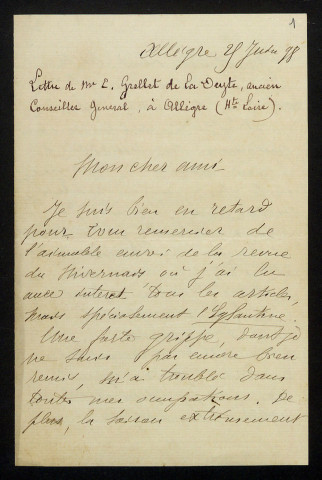 1
Allègre 25 Juin 98
Lettre de Mr E. Grellet de la Deyte, ancien
Conseiller Général, à Allègre (Hte Loire).
Mon cher ami
Je suis bien en retard
pour vous remercier de
l'aimable envoi de la revue
du Nivernais où j'ai lu
avec intérêt tous les articles,
mais spécialement l'Eglantine.
Une forte grippe, dont je
ne suis pas encore bien
remis, m'a troublé dans
toutes mes occupations. De
plus, la saison extrêmement